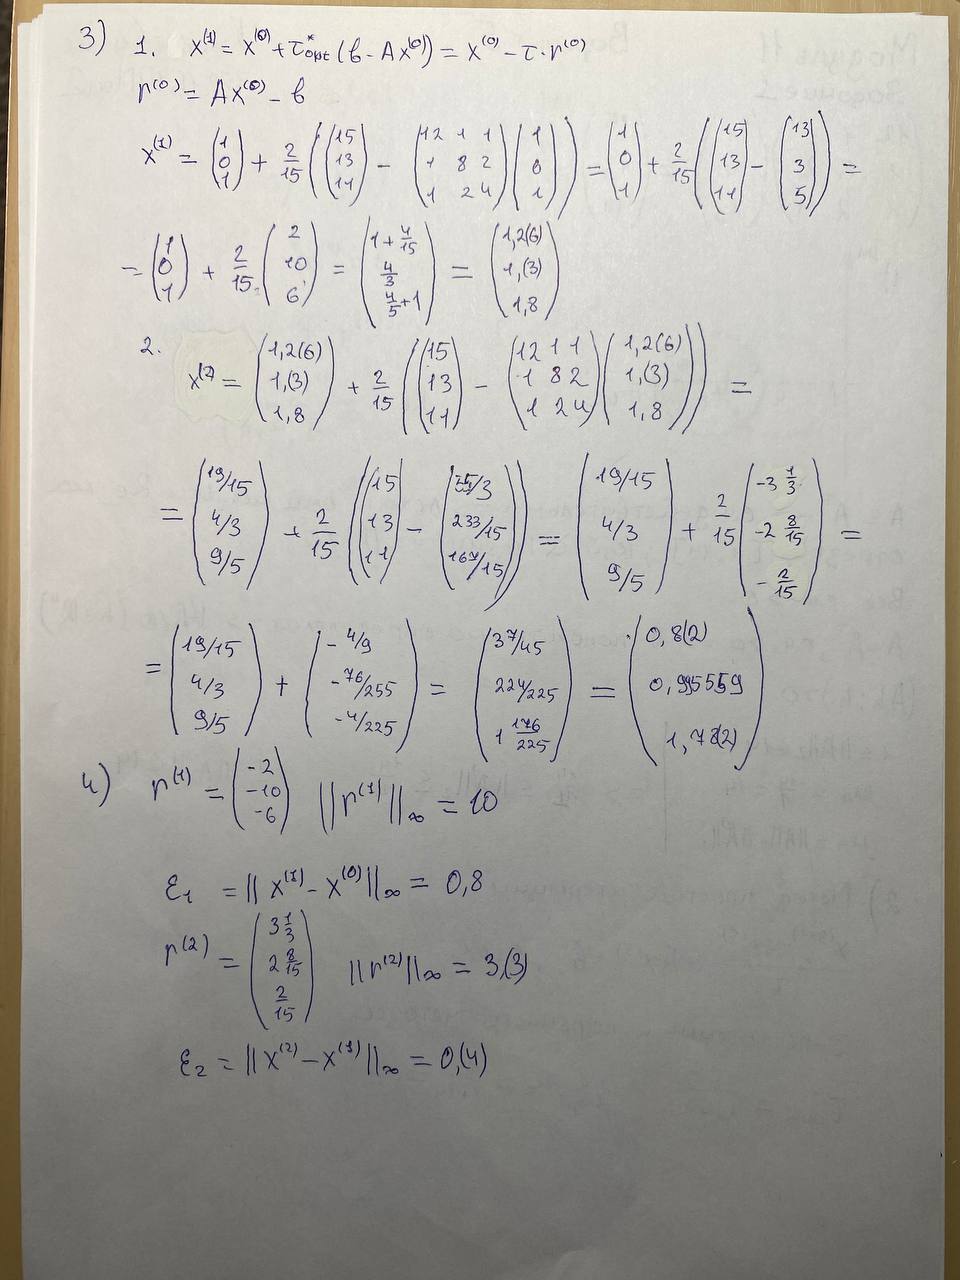 3) 1. x⁽¹⁾ = x⁽⁰⁾ + τ*opt (b - Ax⁽⁰⁾) = x⁽⁰⁾ - τ · r⁽⁰⁾
r⁽⁰⁾ = Ax⁽⁰⁾ - b
x⁽¹⁾ = (1 0 1) + 2/15 ((15 13 11) - (12 1 1 1 8 2 1 2 4) (1 0 1)) = (1 0 1) + 2/15 ((15 13 11) - (13 3 5)) =
= (1 0 1) + 2/15 (2 10 6) = (1 + 4/15 4/3 4/5 + 1) = (1,2(6) 1,(3) 1,8)
2. x⁽²⁾ = (1,2(6) 1,(3) 1,8) + 2/15 ((15 13 11) - (12 1 1 1 8 2 1 2 4) (1,2(6) 1,(3) 1,8)) =
= (19/15 4/3 9/5) + 2/15 ((15 13 11) - (55/3 233/15 167/15)) = (19/15 4/3 9/5) + 2/15 (-3 1/3 -2 8/15 - 2/15) =
= (19/15 4/3 9/5) + (- 4/9 - 76/255 - 4/225) = (37/45 224/225 1 176/225) = (0,8(2) 0,995559 1,78(2))
4) r⁽¹⁾ = (-2 -10 -6) ||r⁽¹⁾||∞ = 10
ε₁ = || x⁽¹⁾ - x⁽⁰⁾ ||∞ = 0,8
r⁽²⁾ = (3 1/3 2 8/15 2/15) ||r⁽²⁾||∞ = 3,(3)
ε₂ = || x⁽²⁾ - x⁽¹⁾ ||∞ = 0,(4)